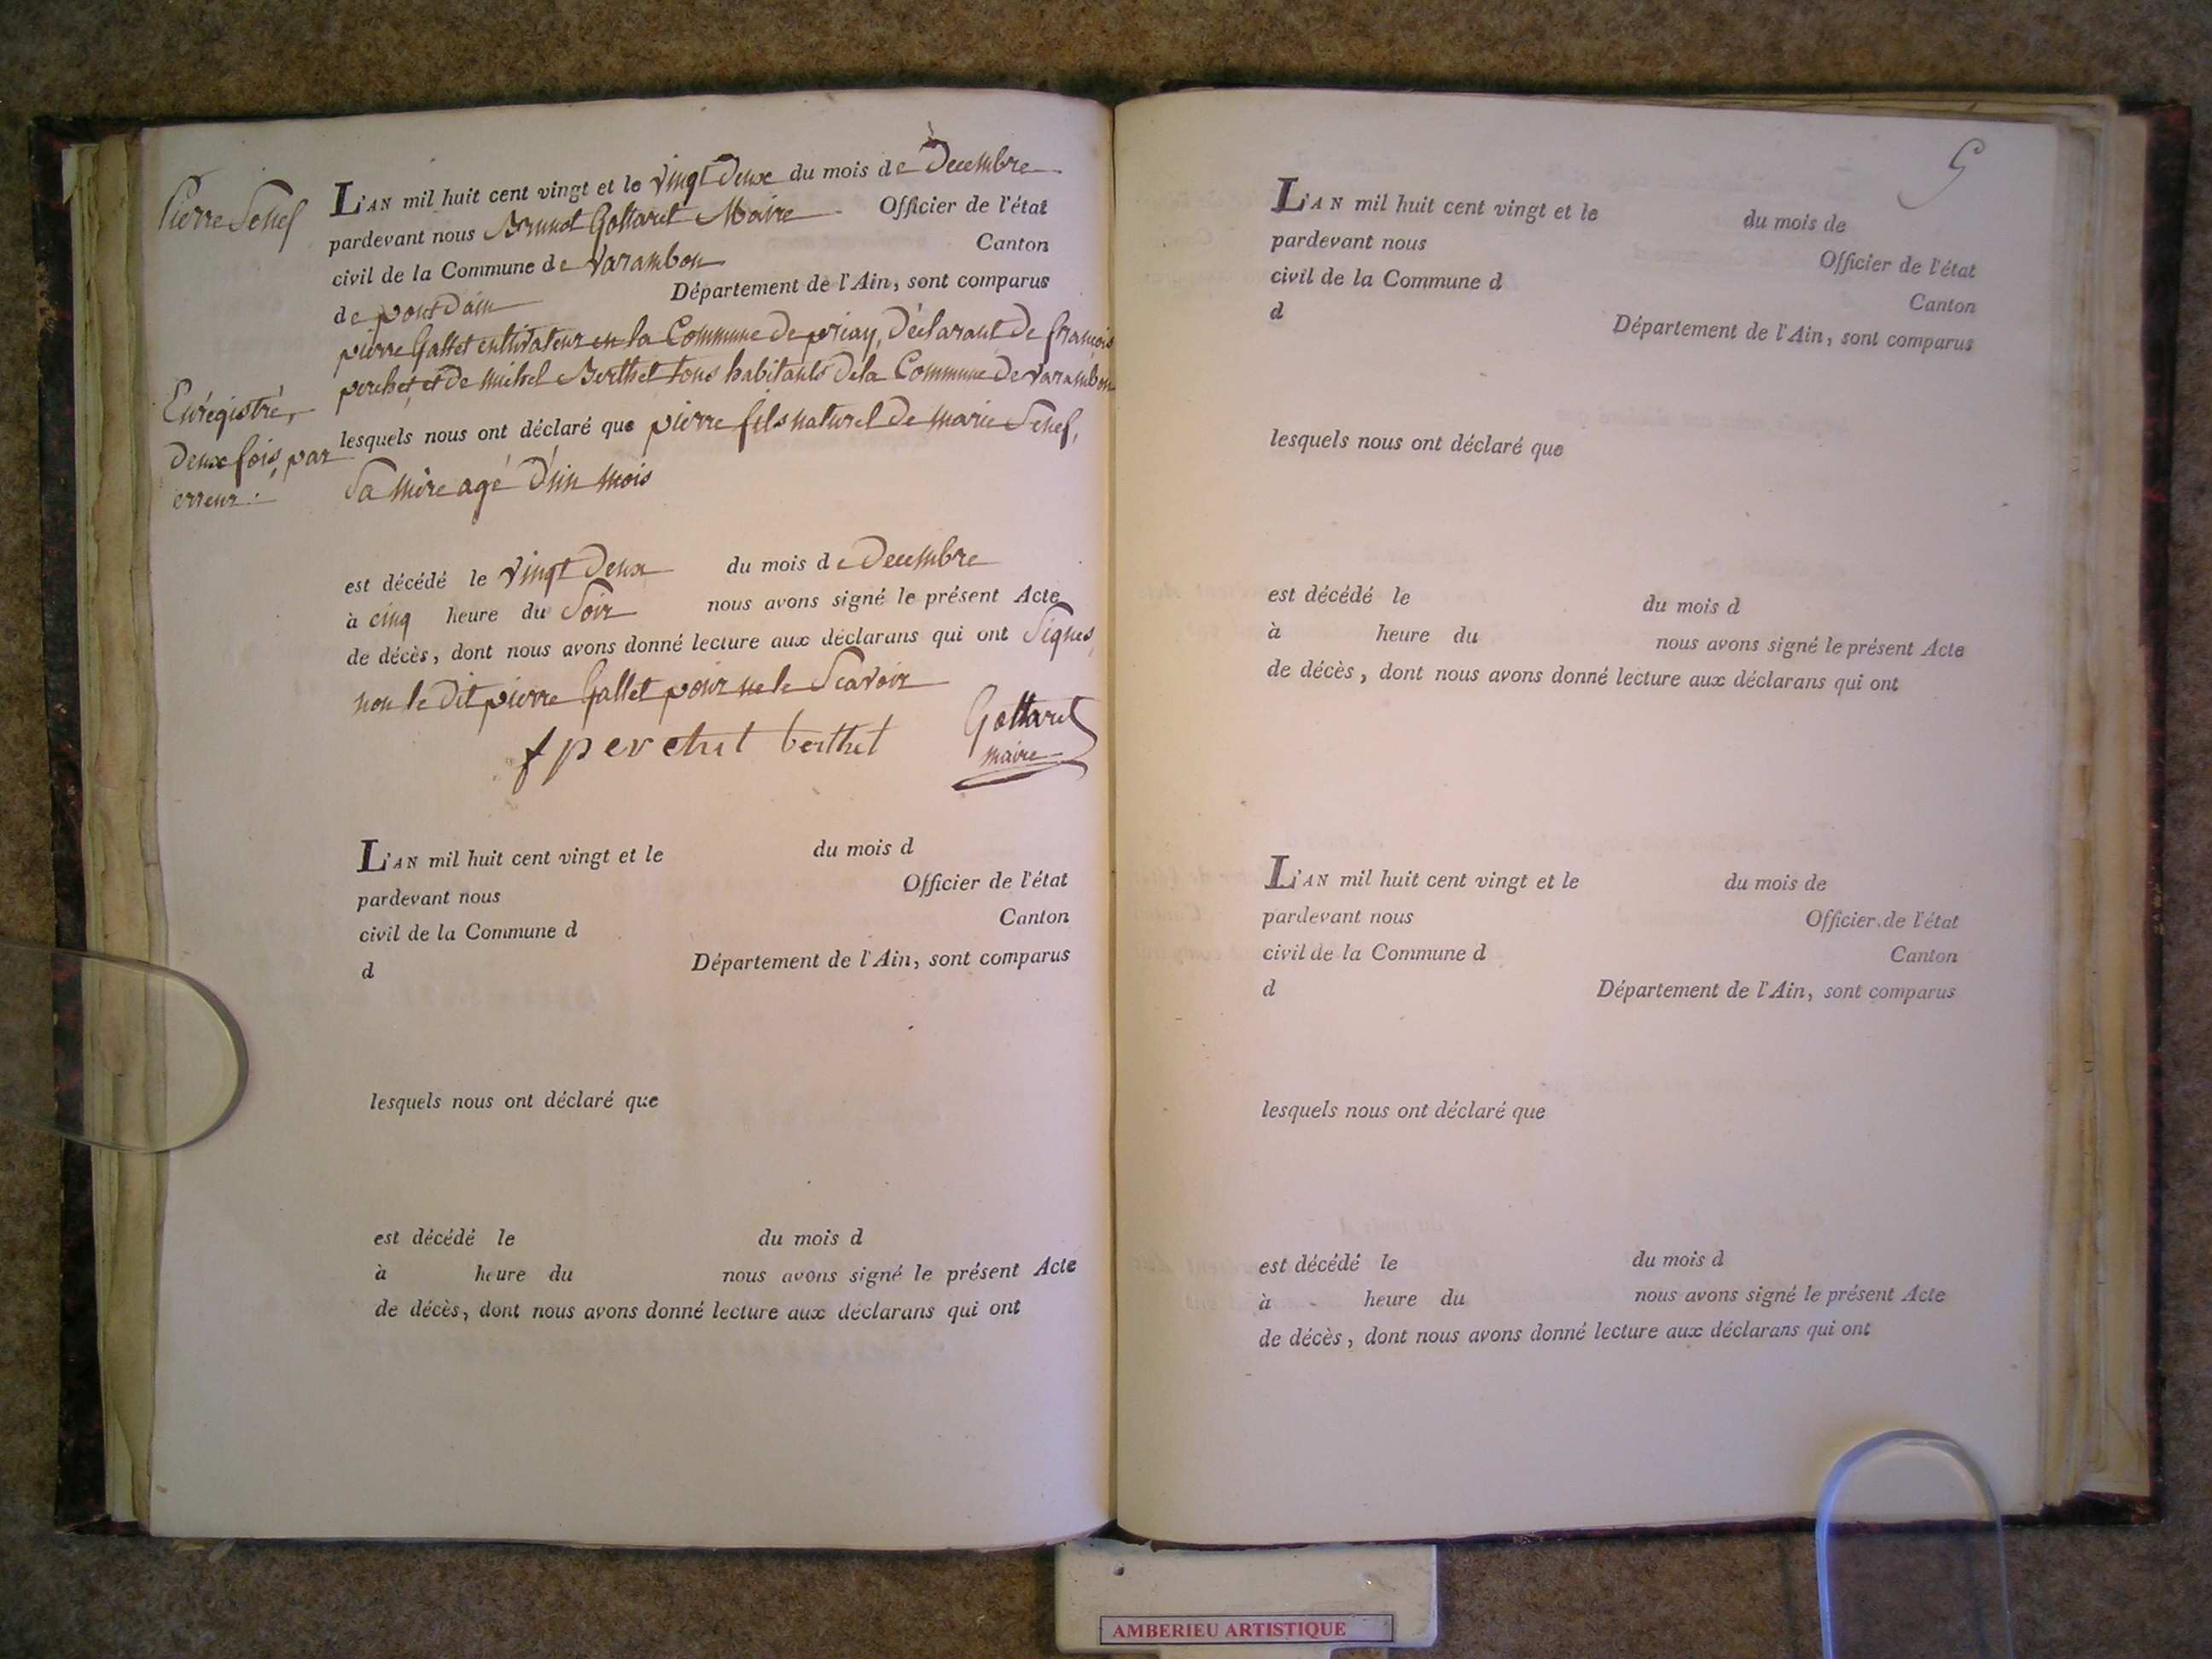 Pierre Senef
L'AN mil huit cent vingt et le vingt deux du mois de Decembre
pardevant nous Gottaret Maire Officier de l'état
civil de la Commune de Varambon Canton
de pont Dain Département de l'Ain, sont comparus
pierre Gallet cultivateur en la Commune de priay, Déclarant de françois
perchet et de michel Berthet tous habitants dela Commune de Varambon
lesquels nous ont déclaré que pierre fils naturel de marie Senef,
Sa mère agé D'un mois
Enrégistré,
Deux fois, par
erreur :
est décédé le vingt Deux du mois de Decembre
à cinq heure du Soir nous avons signé le présent Acte
de décès, dont nous avons donné lecture aux déclarans qui ont Signés,
non le Dit pierre Gallet pour ne le Scavoir
f perchet berthet Gottaret
maire
L'AN mil huit cent vingt et le du mois d
pardevant nous Officier de l'état
civil de la Commune d Canton
d Département de l'Ain, sont comparus
lesquels nous ont déclaré que
est décédé le du mois d
à heure du nous avons signé le présent Acte
de décès, dont nous avons donné lecture aux déclarans qui ont
L'AN mil huit cent vingt et le du mois de
pardevant nous Officier de l'état
civil de la Commune d Canton
d Département de l'Ain, sont comparus
lesquels nous ont déclaré que
est décédé le du mois d
à heure du nous avons signé le présent Acte
de décès, dont nous avons donné lecture aux déclarans qui ont
L'AN mil huit cent vingt et le du mois de
pardevant nous Officier de l'état
civil de la Commune d Canton
d Département de l'Ain, sont comparus
lesquels nous ont déclaré que
est décédé le du mois d
à heure du nous avons signé le présent Acte
de décès, dont nous avons donné lecture aux déclarans qui ont
AMBERIEU ARTISTIQUE